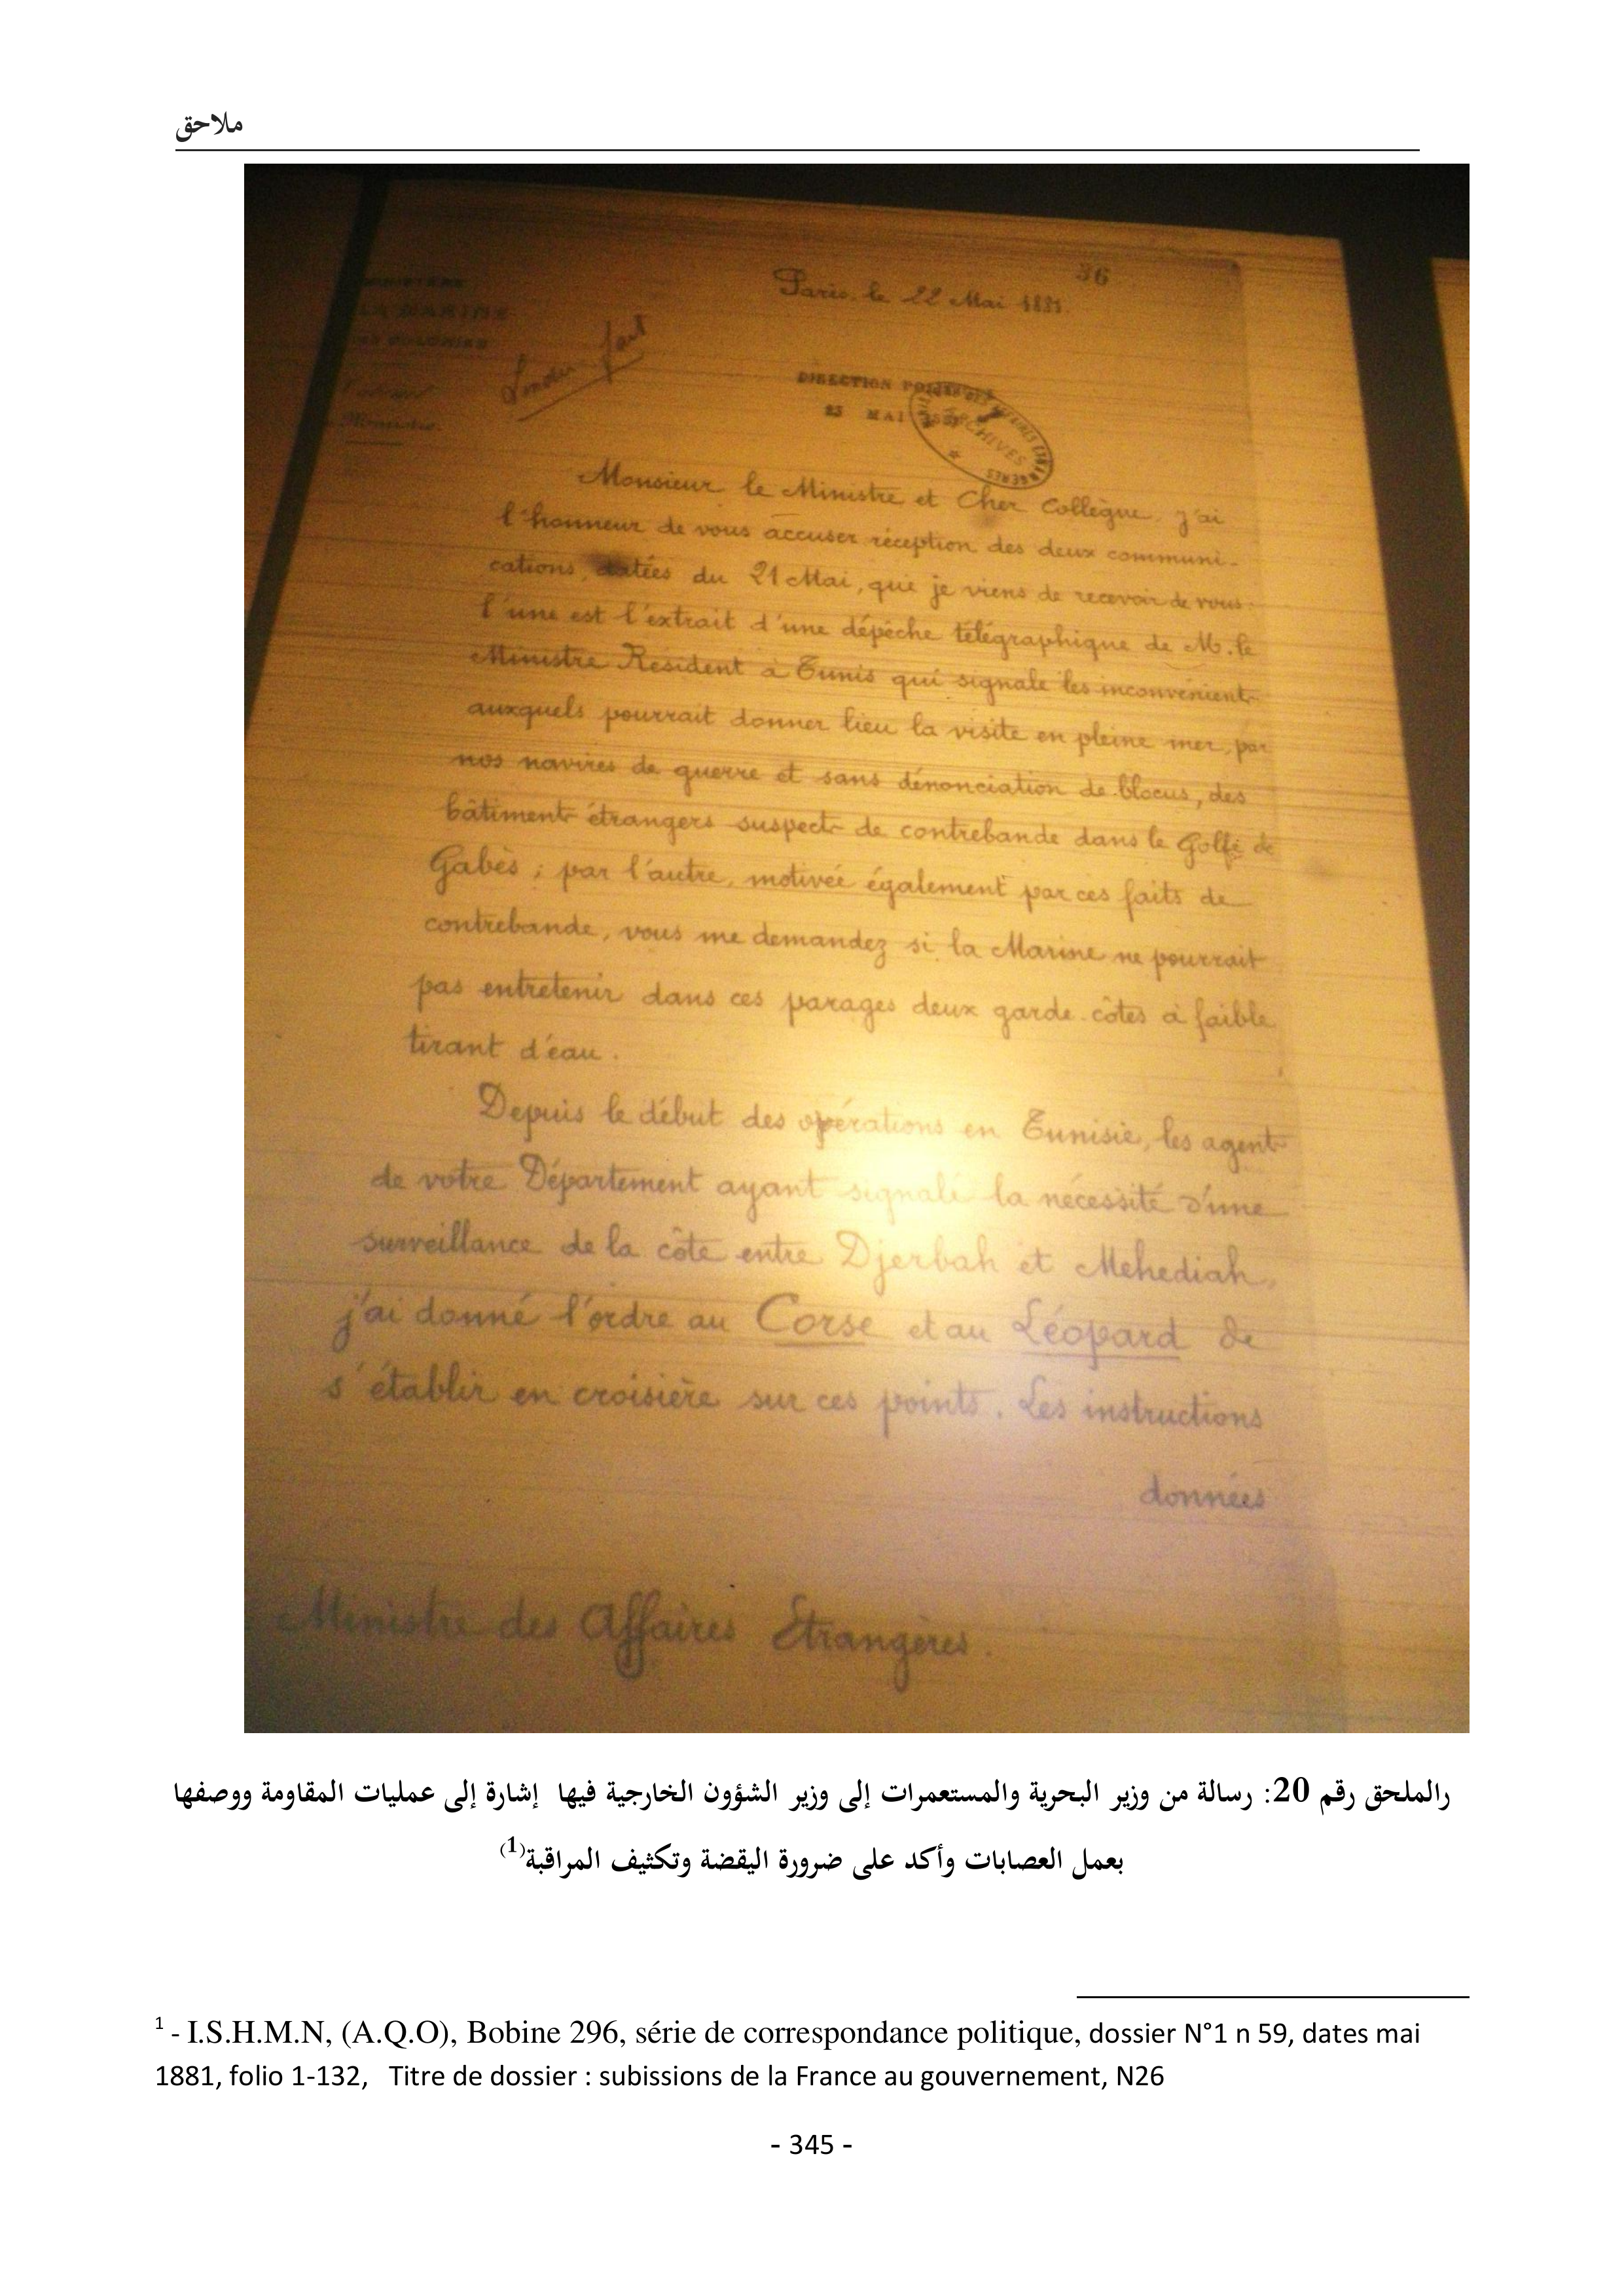 ملاحق
36
Paris, le 22 Mai 1881.
LA MARINE
COLONIES
fait
DIRECTION POLITIQUE
23 MAI 1881
ARCHIVES
Ministre.
Monsieur le Ministre et Cher Collègue, j'ai
l'honneur de vous accuser réception des deux communi-
cations, datées du 21 Mai, que je viens de recevoir de vous:
l'une est l'extrait d'une dépêche télégraphique de M. le
Ministre Résident à Tunis qui signale les inconvénients
auxquels pourrait donner lieu la visite en pleine mer, par
nos navires de guerre et sans dénonciation de blocus, des
bâtiments étrangers suspects de contrebande dans le Golfe de
Gabès; par l'autre, motivée également par ces faits de
contrebande, vous me demandez si la Marine ne pourrait
pas entretenir dans ces parages deux garde-côtes à faible
tirant d'eau.
Depuis le début des opérations en Tunisie, les agents
de votre Département ayant signalé la nécessité d'une
surveillance de la côte entre Djerbah et Mehediah,
j'ai donné l'ordre au Corse et au Léopard de
s'établir en croisière sur ces points. Les instructions
données
Ministre des Affaires Etrangères.
رالملحق رقم 20: رسالة من وزير البحرية والمستعمرات إلى وزير الشؤون الخارجية فيها إشارة إلى عمليات المقاومة ووصفها
بعمل العصابات وأكد على ضرورة اليقضة وتكثيف المراقبة(1)
1 - I.S.H.M.N, (A.Q.O), Bobine 296, série de correspondance politique, dossier N°1 n 59, dates mai
1881, folio 1-132, Titre de dossier : subissions de la France au gouvernement, N26
- 345 -